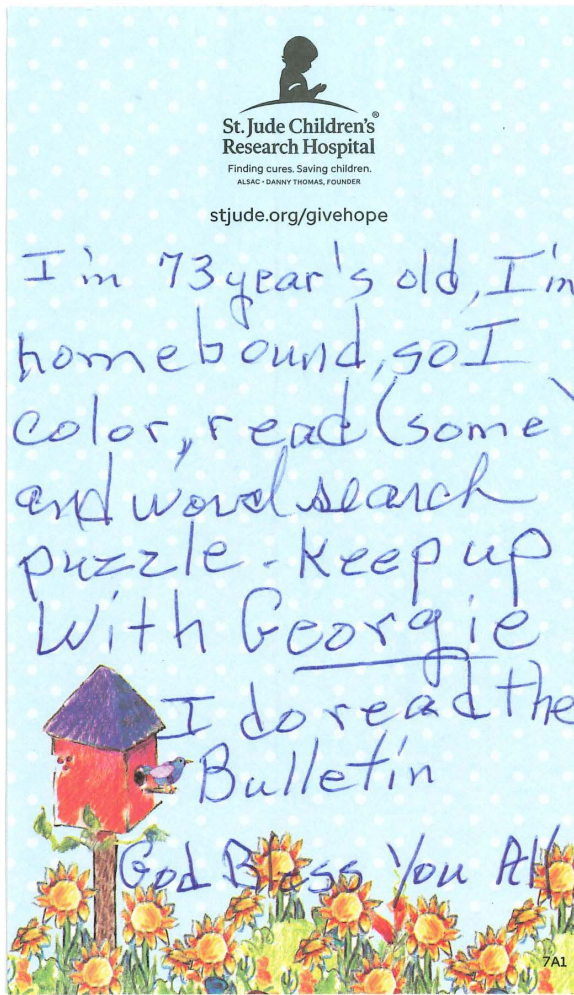 St. Jude Children's®
Research Hospital
Finding cures. Saving children.
ALSAC • DANNY THOMAS, FOUNDER
stjude.org/givehope
I'm 73 year's old, I'm
homebound, so I
color, read (some)
and word search
puzzle - Keep up
With Georgie
I do read the
Bulletin
God Bless You All
7A1